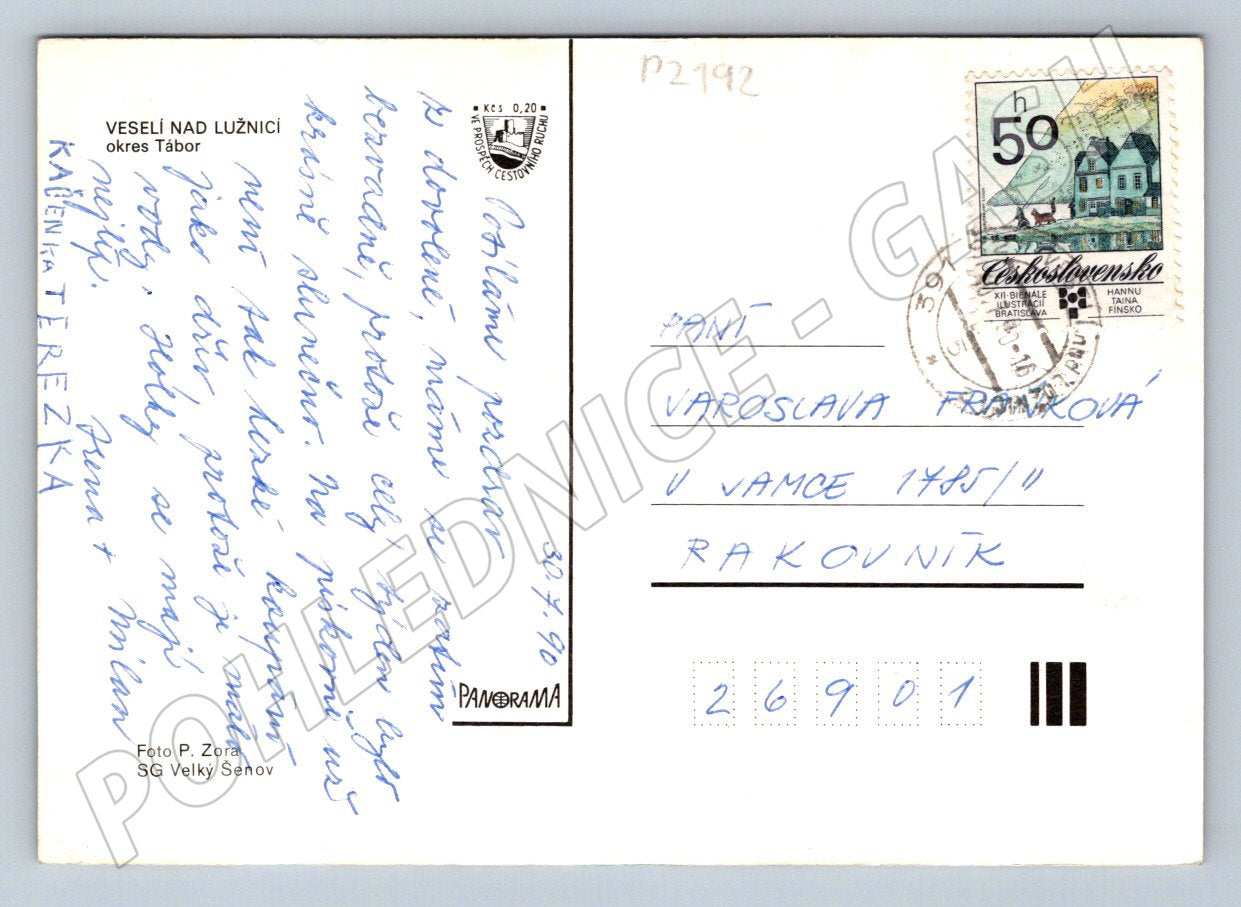 P2192
VESELÍ NAD LUŽNICÍ
okres Tábor
Kčs 0,20
VE PROSPĚCH CESTOVNÍHO RUCHU
30.7.90
Posílám pozdrav
z dovolené, máme se zatím
bezvadně, protože celý týden bylo
krásně slunečno. Na pískovně už
není tak hezké koupání
jako dřív, protože je málo
vody. Holky se mají
nejlíp.
Irena + Milan
KAČENKA TEREZKA
PANORAMA
Foto P. Zora
SG Velký Šenov
h
50
Československo
XII. BIENÁLE
ILUSTRÁCIÍ
BRATISLAVA
HANNU
TAINA
FÍNSKO
391
5
PANÍ
JAROSLAVA FRAŇKOVÁ
V JAMCE 1785/II
RAKOVNÍK
26901
POHLEDNICE - GASH